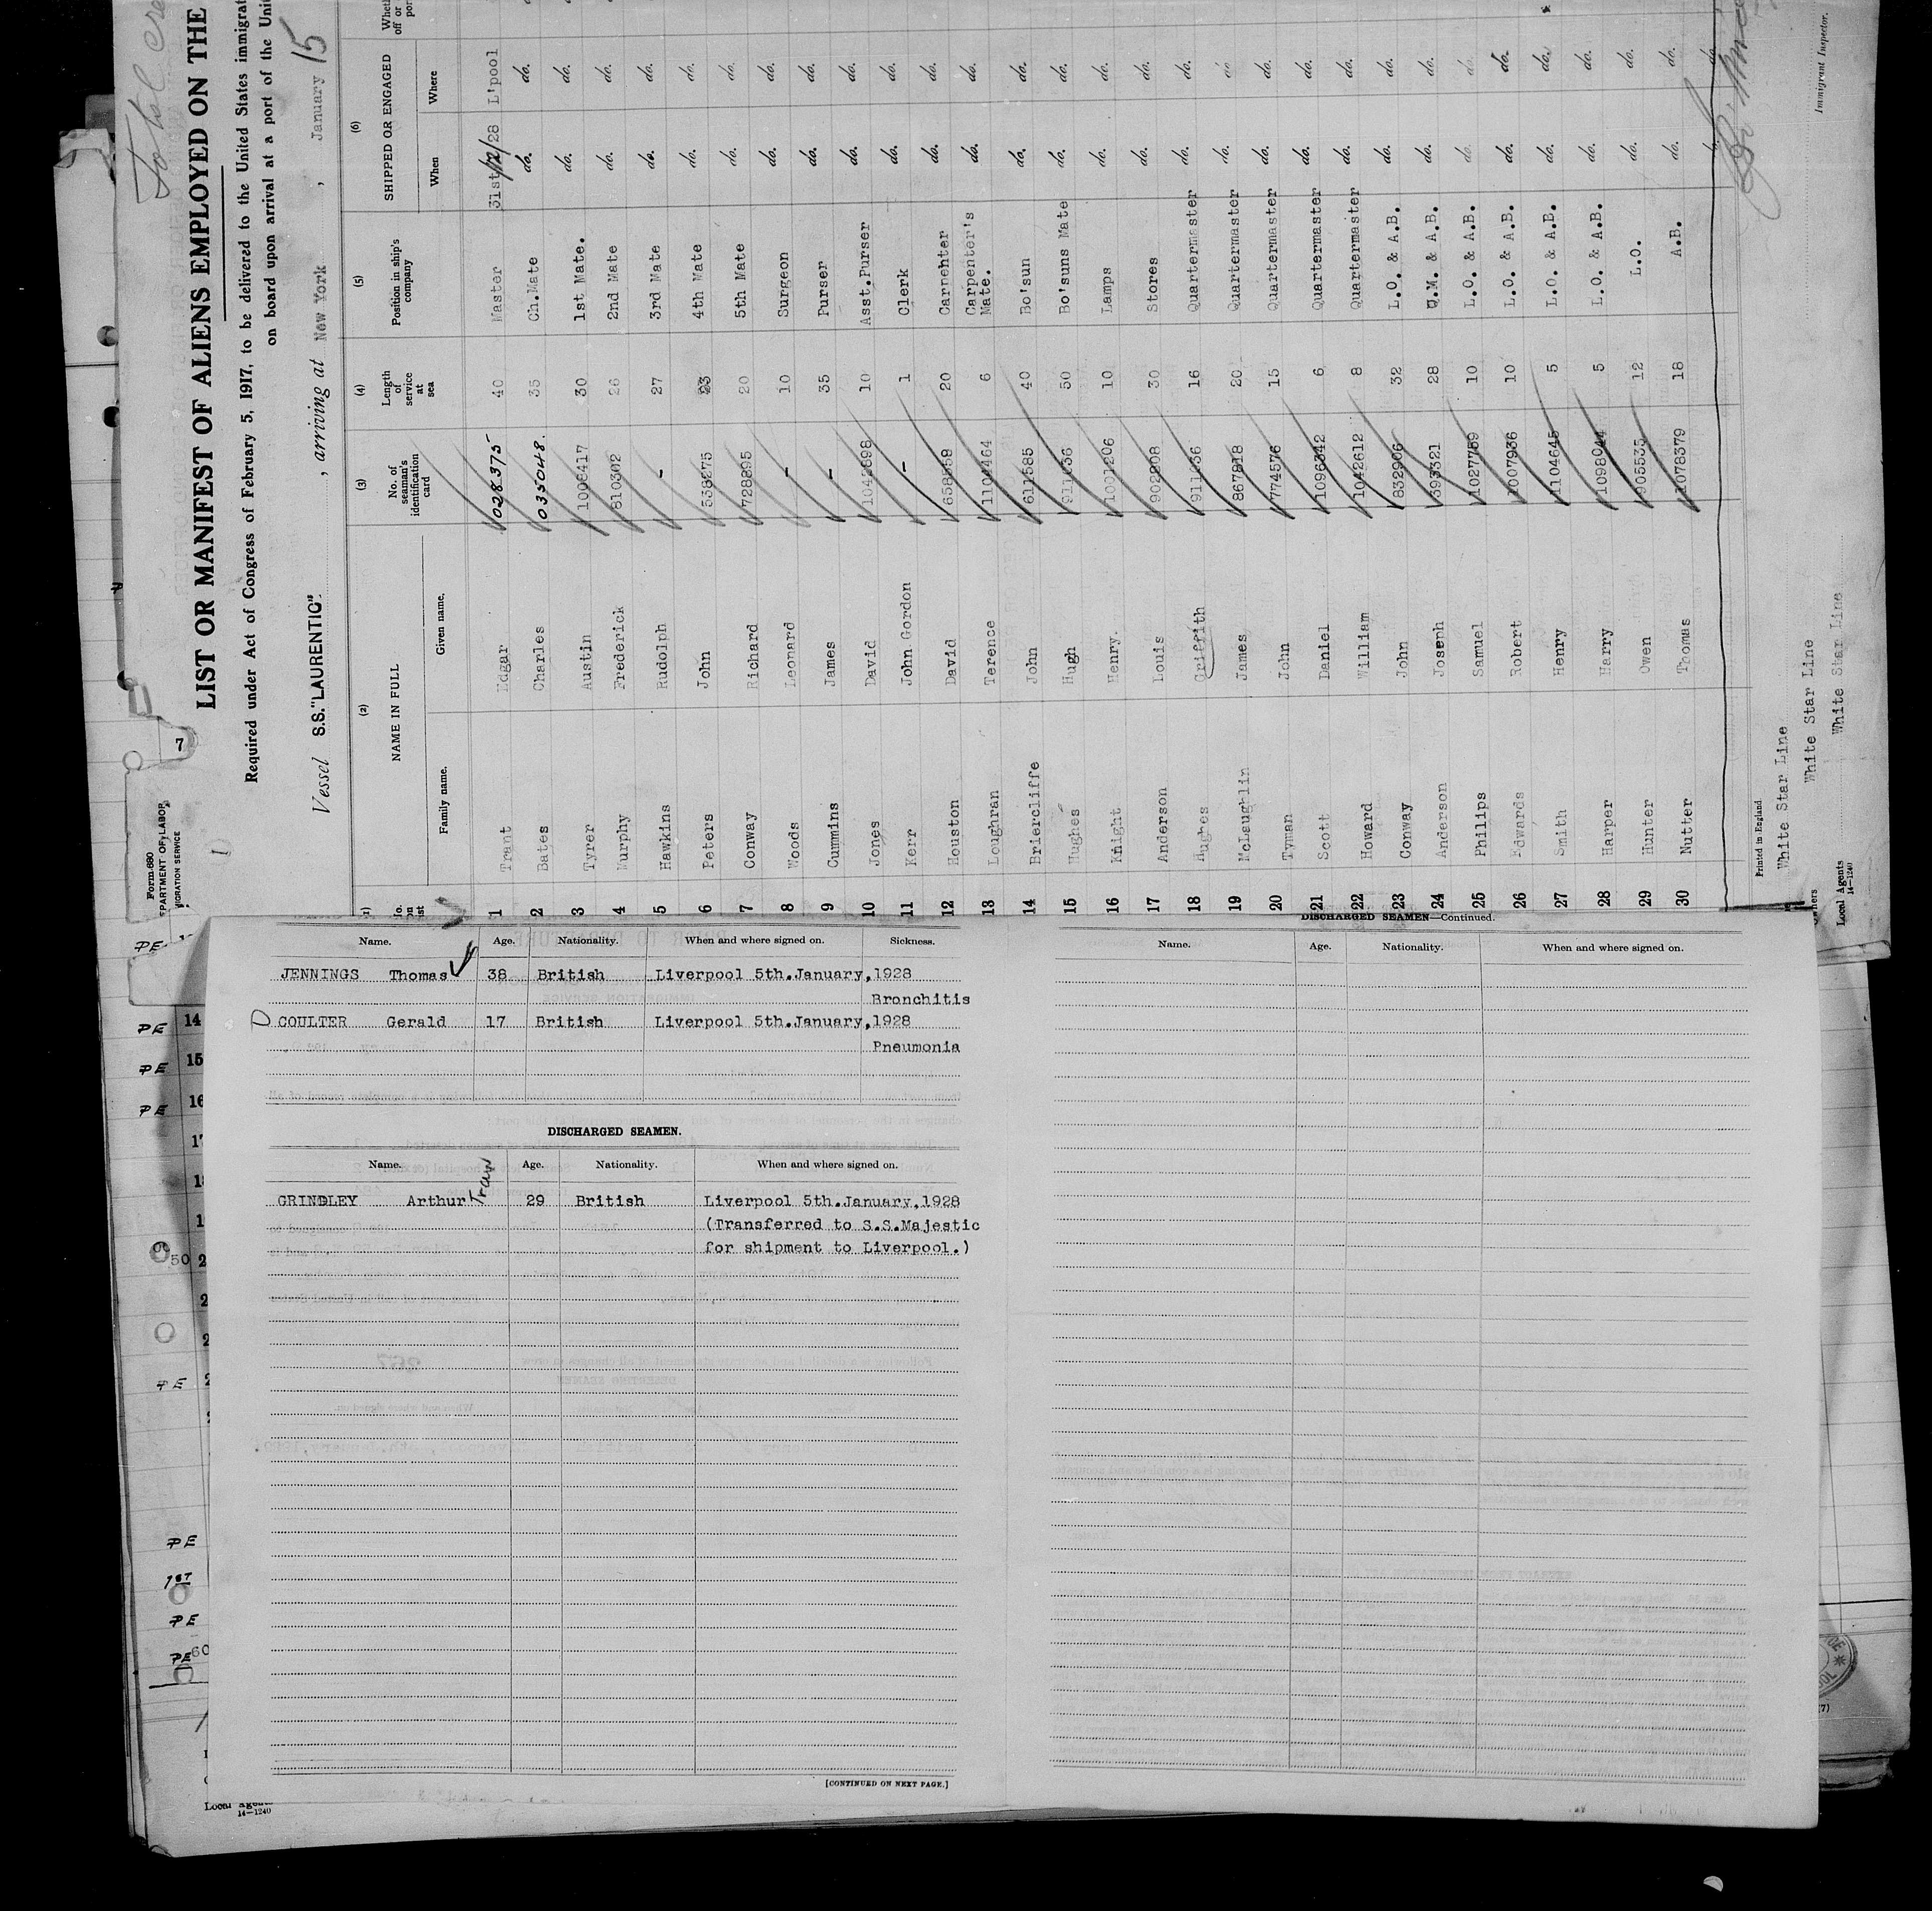 LIST OR MANIFEST OF ALIENS EMPLOYED ON THE
Required under Act of Congress of February 5, 1917, to be delivered to the United States immigrat
on board upon arrival at a port of the Uni
Vessel S.S."LAURENTIC". , arriving at New York , January 15
Form 680
DEPARTMENT OF LABOR
7
(2) (3) (4) (5) (6)
NAME IN FULL No. of seaman's identification card Length of service at sea Position in ship's company SHIPPED OR ENGAGED
Family name. Given name. When Where
1 Trant Edgar 028375 40 Master 31st/12/28 L'pool
2 Bates Charles 035048 35 Ch.Mate do. do.
3 Tyrer Austin 1008417 30 1st Mate. do. do.
4 Murphy Frederick 810302 26 2nd Mate do. do.
5 Hawkins Rudolph - 27 3rd Mate do. do.
6 Peters John 538275 23 4th Mate do. do.
7 Conway Richard 728895 20 5th Mate do. do.
8 Woods Leonard - 10 Surgeon do. do.
9 Cummins James - 35 Purser do. do.
10 Jones David 1042898 10 Asst.Purser do. do.
11 Kerr John Gordon - 1 Clerk do. do.
12 Houston David 658858 20 Carpenter do. do.
13 Loughran Terence 1104464 6 Carpenter's Mate. do. do.
14 Briercliffe John 611585 40 Bo'sun do. do.
15 Hughes Hugh 911036 50 Bo'suns Mate do. do.
16 Knight Henry. 1001206 10 Lamps do. do.
17 Anderson Louis 902808 30 Stores do. do.
18 Hughes Griffith 911036 16 Quartermaster do. do.
19 McLaughlin James 867818 20 Quartermaster do. do.
20 Tyman John 774576 15 Quartermaster do. do.
21 Scott Daniel 1096342 6 Quartermaster do. do.
22 Howard William 1042612 8 Quartermaster do. do.
23 Conway John 832906 32 L.O. & A.B. do. do.
24 Anderson Joseph 393321 28 Q.M. & A.B. do. do.
25 Philips Samuel 1027759 10 L.O. & A.B. do. do.
26 Edwards Robert 1007936 10 L.O. & A.B. do. do.
27 Smith Henry 1104645 5 L.O. & A.B. do. do.
28 Harper Harry 1098044 5 L.O. & A.B. do. do.
29 Hunter Owen 905535 12 L.O. do. do.
30 Nutter Thomas 1078379 18 A.B. do. do.
Printed in England
White Star Line
White Star Line
Local Agents White Star Line
14-1240
Immigrant Inspector.
Name. Age. Nationality. When and where signed on. Sickness.
JENNINGS Thomas 38 British Liverpool 5th.January,1928
Bronchitis
D COULTER Gerald 17 British Liverpool 5th.January,1928
Pneumonia
DISCHARGED SEAMEN.
Name. Age. Nationality. When and where signed on.
GRINDLEY Arthur Tran 29 British Liverpool 5th.January,1928
(Transferred to S.S.Majestic
for shipment to Liverpool.)
[CONTINUED ON NEXT PAGE.]
DISCHARGED SEAMEN—Continued.
Name. Age. Nationality. When and where signed on.
PE
PE 14
PE 15
PE 16
50
PE
PE
1ST
PE
PE 60
Local Agents
14-1240